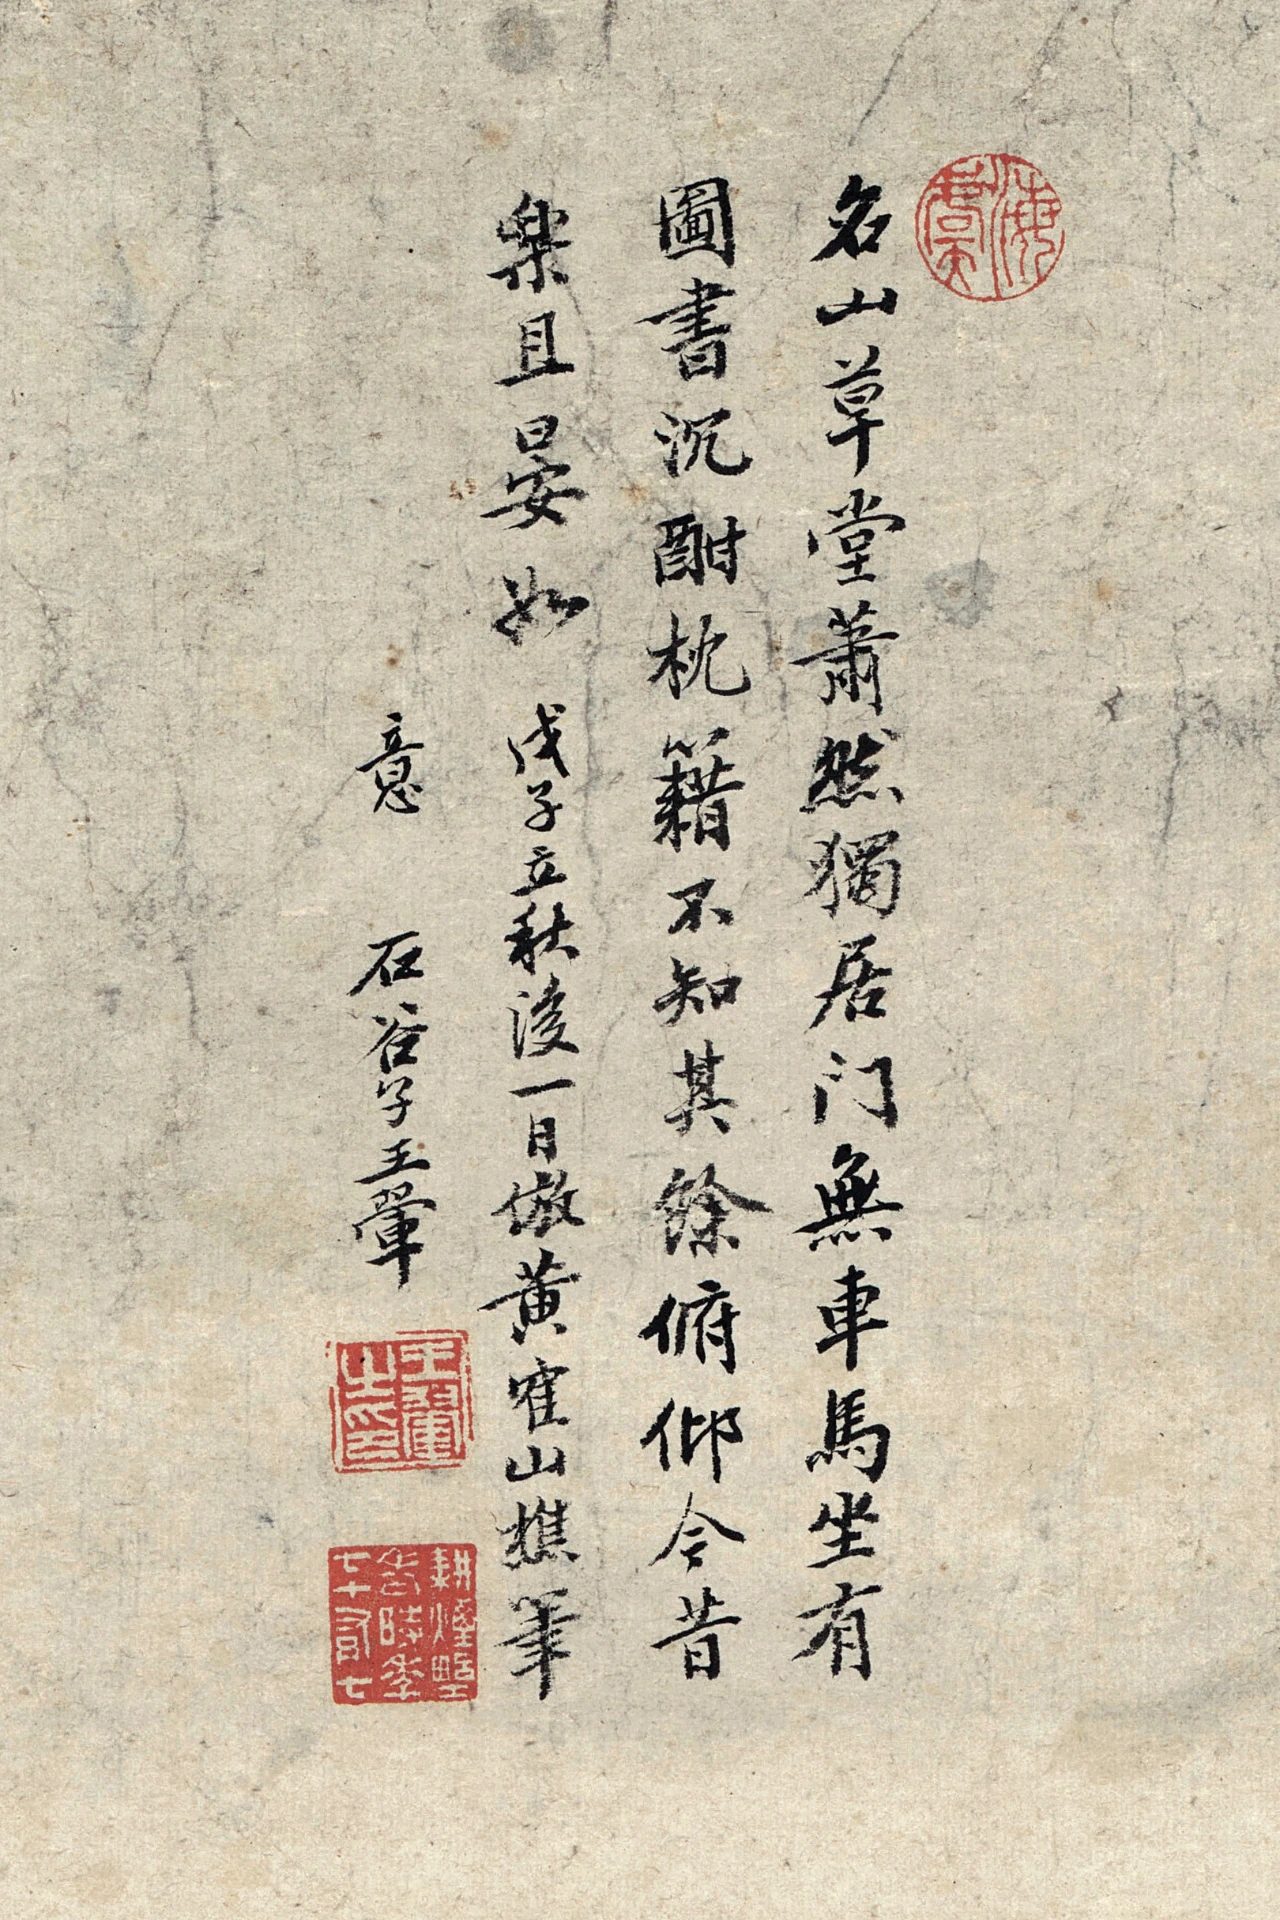 名山草堂蕭然獨居门無車馬坐有
圖書沉酣枕籍不知其餘俯仰今昔
樂且晏如
戊子立秋後一日倣黄隺山樵筆
意 石谷子王翬
王翬之印
耕煙野老時年七十有七